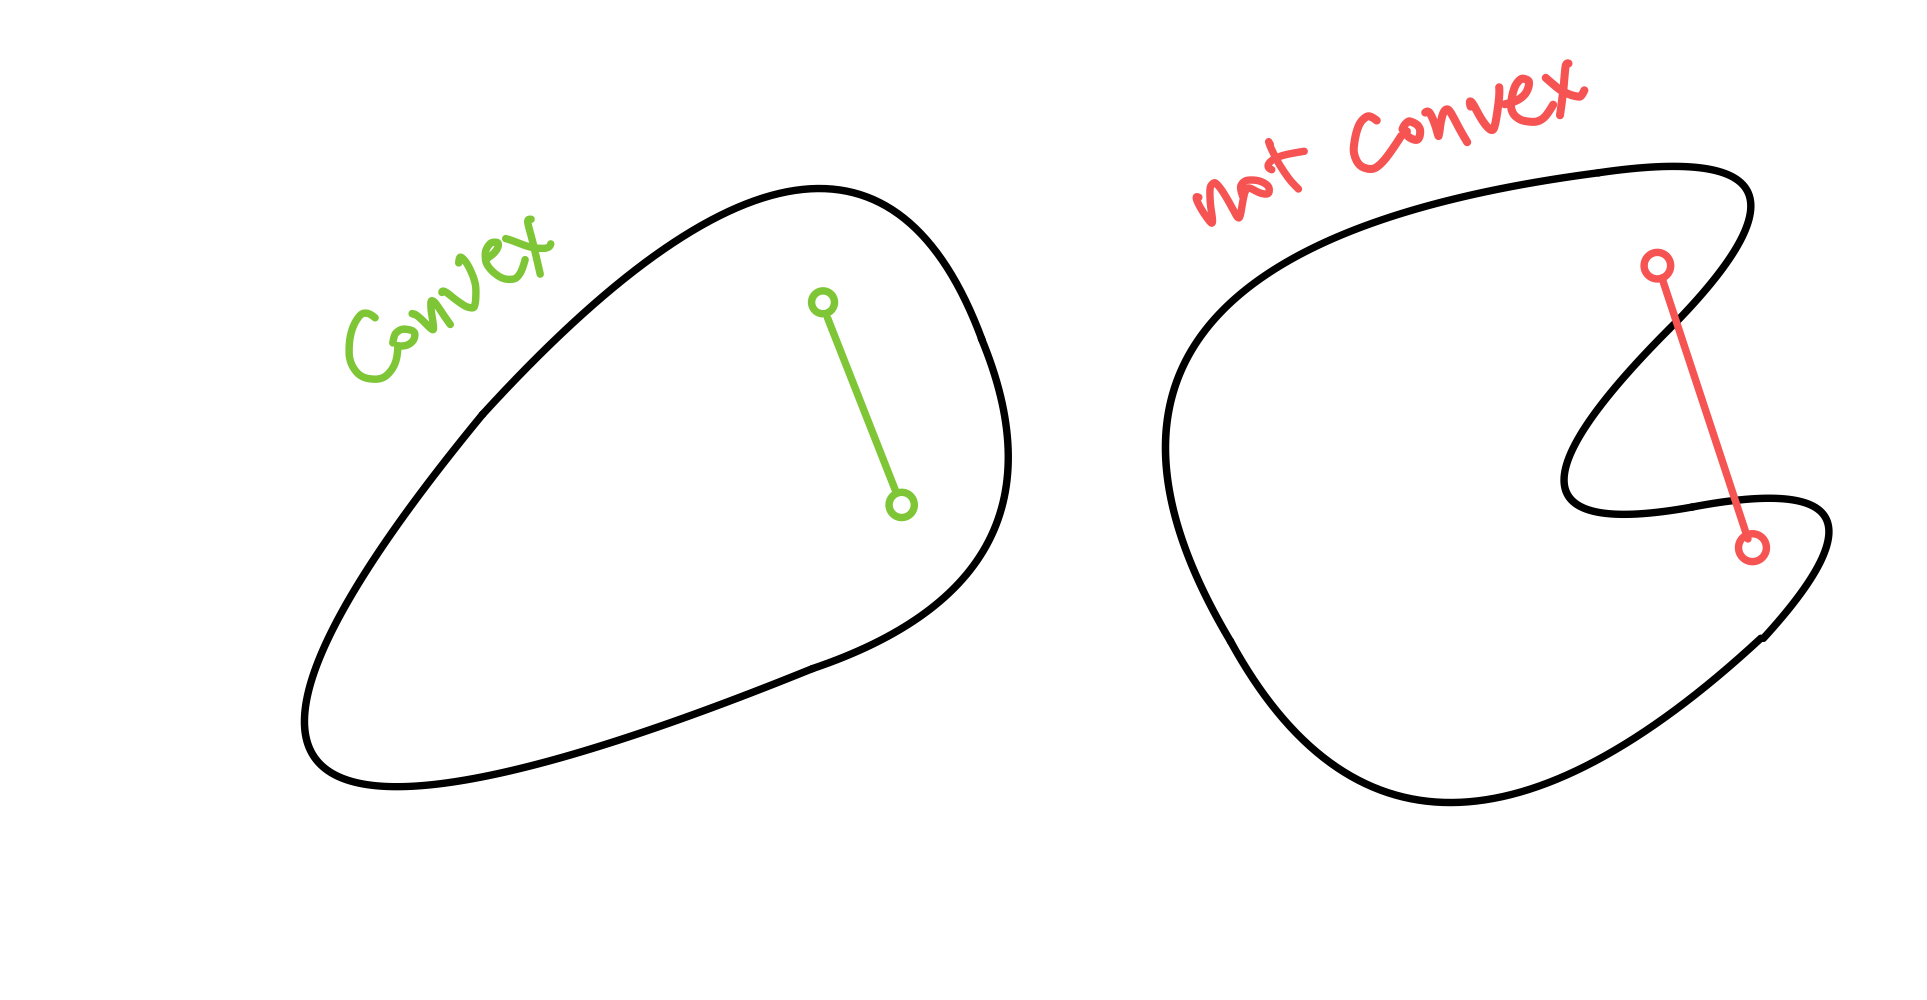 Convex
not Convex